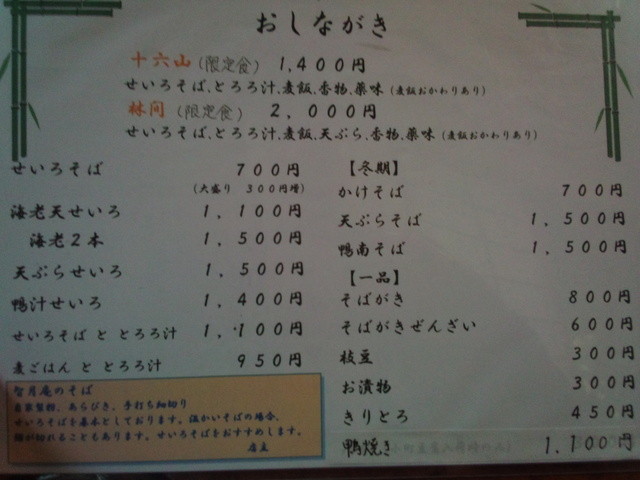 おしながき
十六山(限定食) 1,400円
せいろそば、とろろ汁、麦飯、香物、薬味(麦飯おかわりあり)
林间(限定食) 2,000円
せいろそば、とろろ汁、麦飯、天ぷら、香物、薬味(麦飯おかわりあり)
せいろそば 700円
(大盛り 300円増)
海老天せいろ 1,100円
海老2本 1,500円
天ぷらせいろ 1,500円
鴨汁せいろ 1,400円
せいろそば と とろろ汁 1,100円
麦ごはん と とろろ汁 950円
智月庵のそば
自家製粉、あらびき、手打ち細切り
せいろそばを基本としております。温かいそばの場合、
麺が切れることもあります。せいろそばをおすすめします。
店主
【冬期】
かけそば 700円
天ぷらそば 1,500円
鴨南そば 1,500円
【一品】
そばがき 800円
そばがきぜんざい 600円
枝豆 300円
お漬物 300円
きりとろ 450円
鴨焼き 1,100円